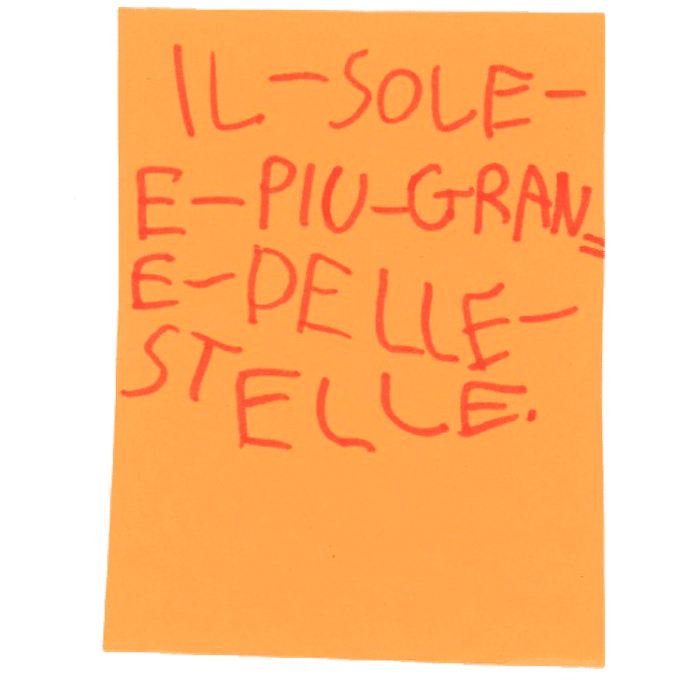 IL-SOLE-
E-PIU-GRAN=
E-DELLE-
STELLE.